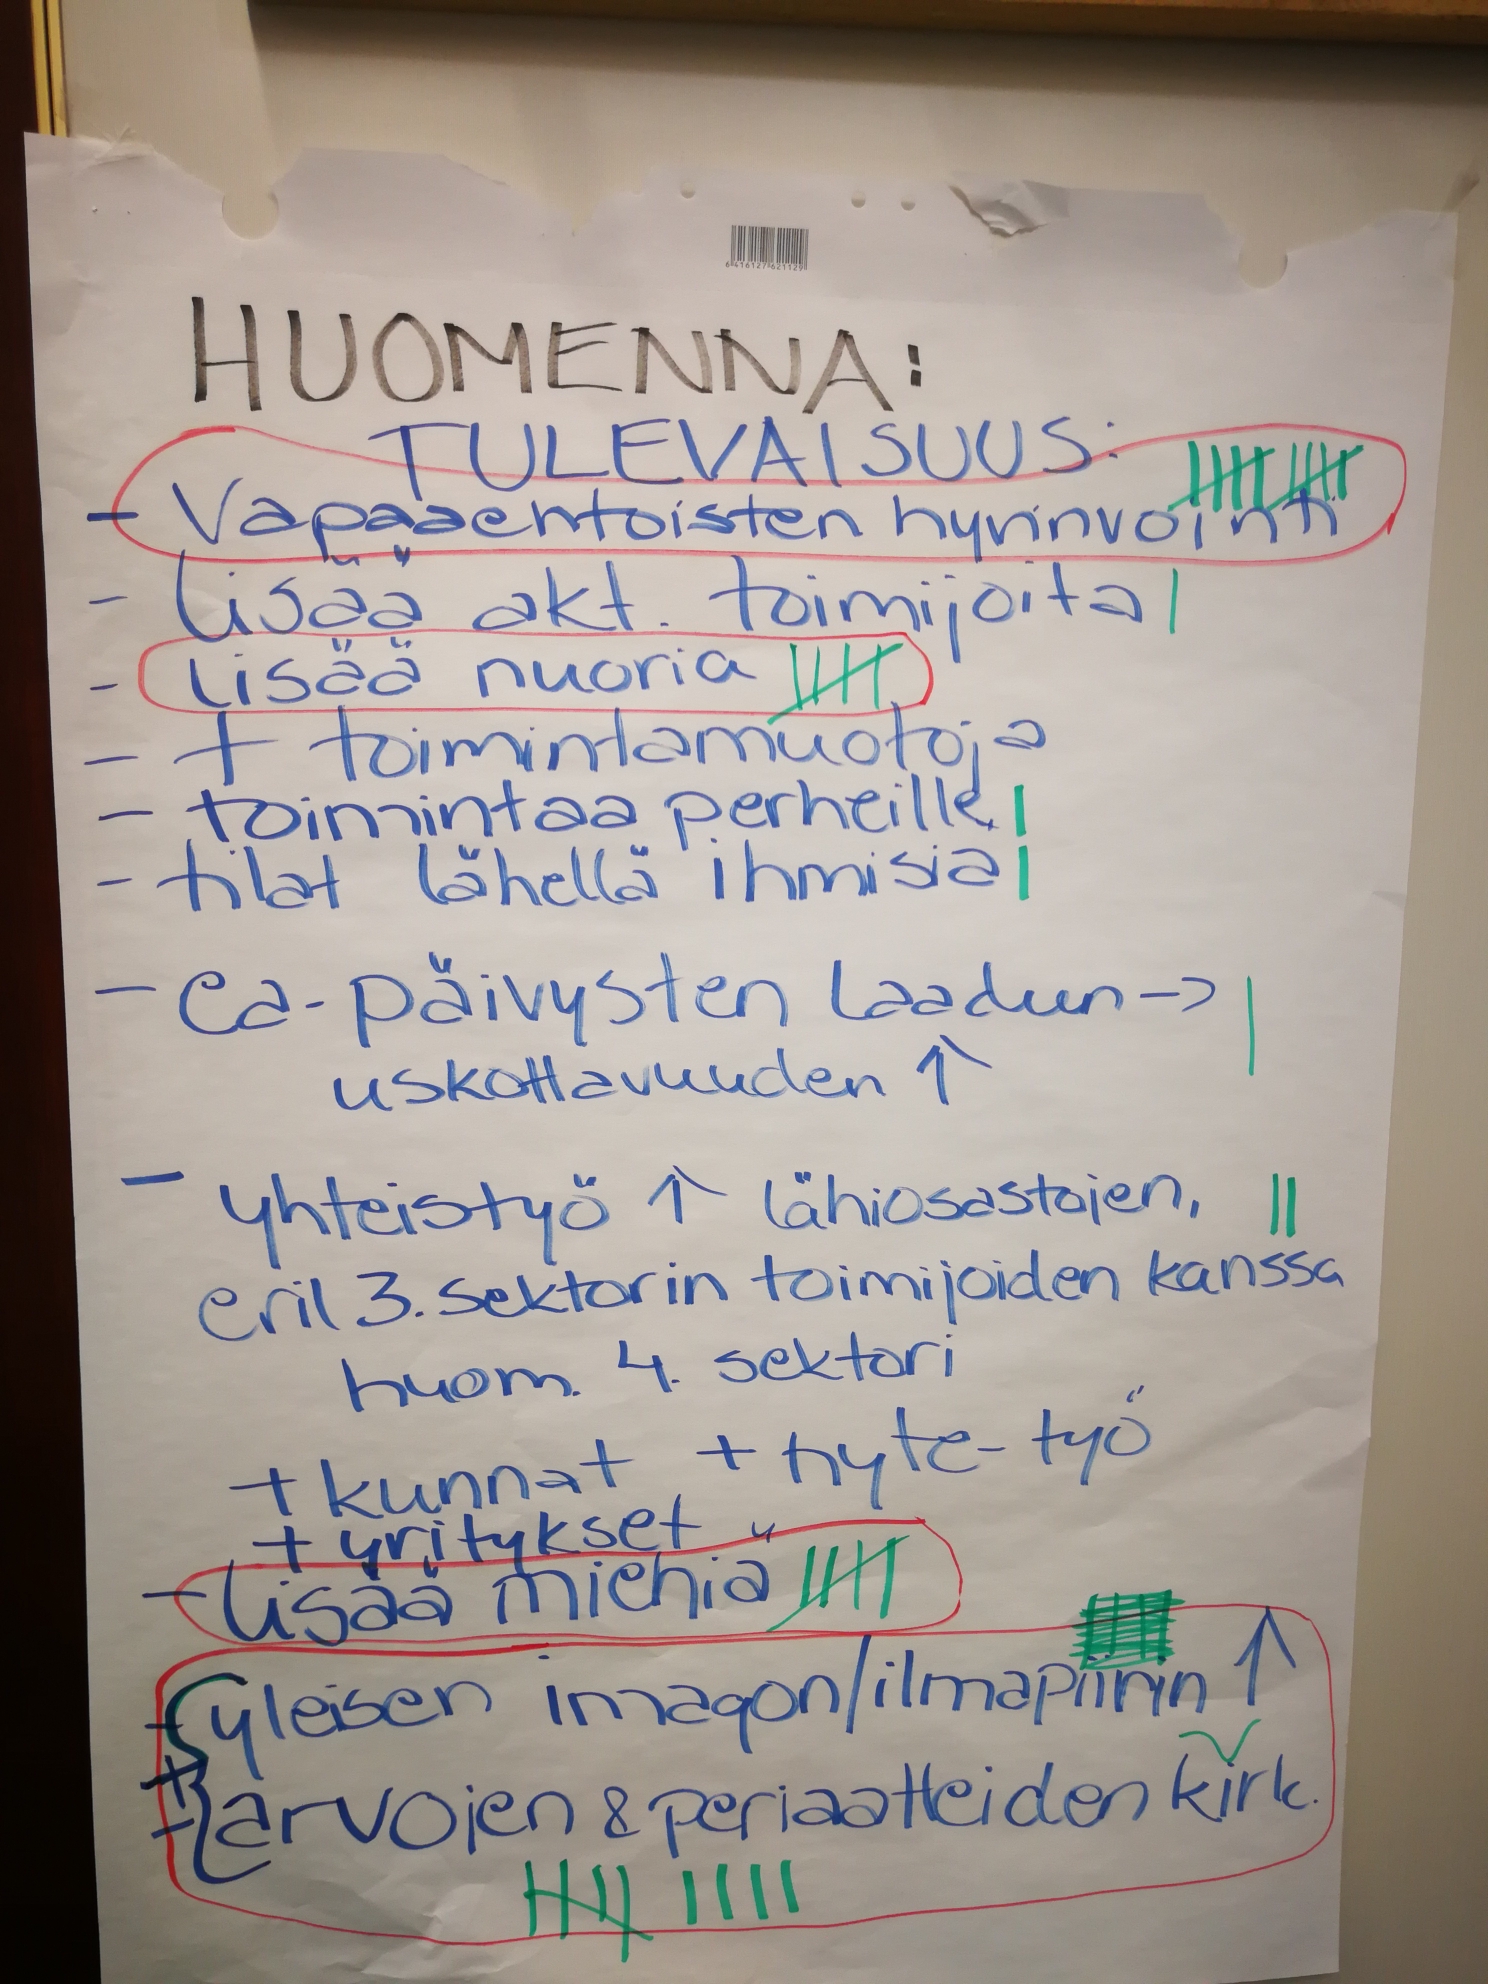 6416127621129
HUOMENNA:
TULEVAISUUS:
- Vapaaehtoisten hyvinvointi
- lisää akt. toimijoita
- lisää nuoria
- + toimintamuotoja
- toimintaa perheille
- tilat lähellä ihmisiä
- Ea-päivysten laadun ->
uskottavuuden ↑
- yhteistyö ↑ lähiosastojen,
eril 3. sektorin toimijoiden kanssa
huom. 4. sektori
+ kunnat + hyte-työ
+ yritykset
- lisää miehiä
- yleisen imagon/ilmapiirin ↑
+
- arvojen & periaatteiden kirk.